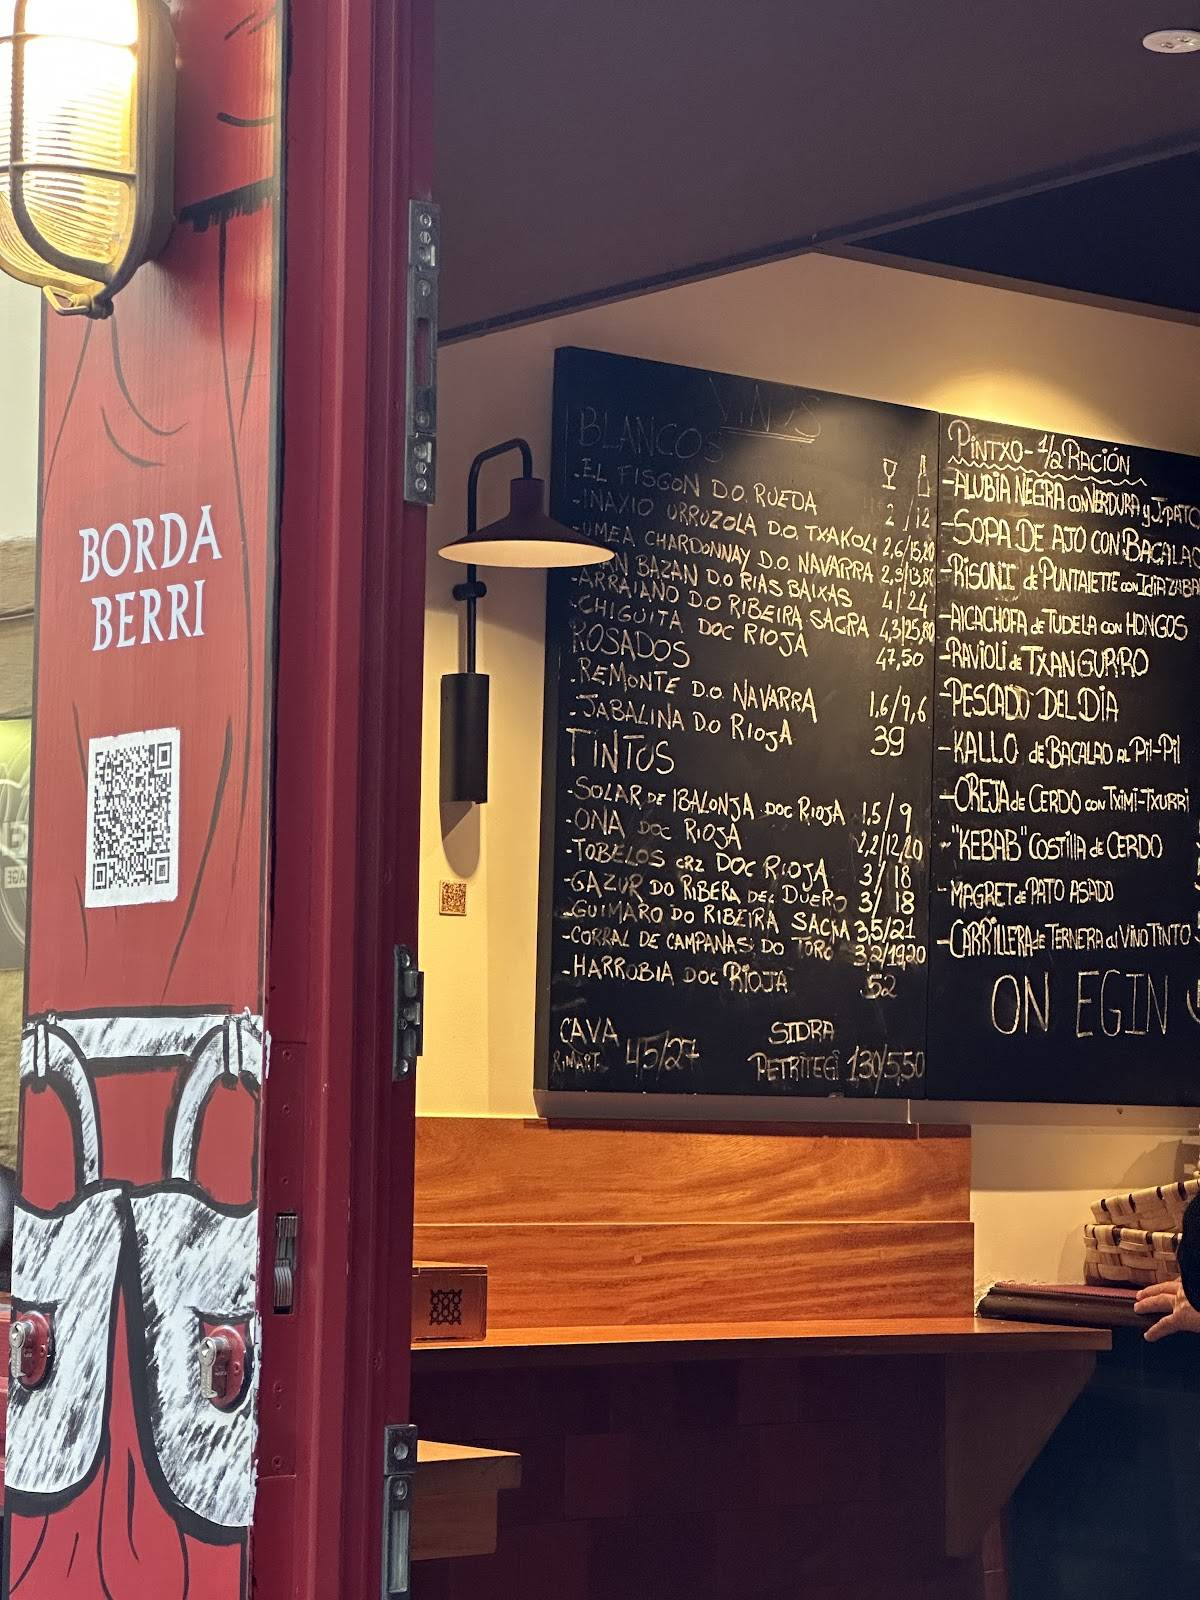 BORDA
BERRI
VINOS
BLANCOS
-EL FISGON D.O. RUEDA 2/12
-INAXIO URRUZOLA D.O. TXAKOLI 2,6/15,20
-UMEA CHARDONNAY D.O. NAVARRA 2,3/13,80
BAZAN DO RIAS BAIXAS 4/24
-ARRAIANO D.O RIBEIRA SACRA 4,3/25,80
-CHIGUITA DOC RIOJA 47,50
ROSADOS
-REMONTE D.O. NAVARRA 1,6/9,6
-JABALINA D.O RIOJA 39
TINTOS
-SOLAR DE IBALONJA DOC RIOJA 1,5/9
-ONA DOC RIOJA 2,2/12,20
-TOBELOS CRZ DOC RIOJA 3/18
-GAZUR DO RIBERA DEL DUERO 3/18
-GUIMARO DO RIBEIRA SACRA 3,5/21
-CORRAL DE CAMPANAS DO TORO 3,2/19,20
-HARROBIA DOC RIOJA 52
CAVA
RIMART 4,5/27
SIDRA
PETRITEGI 1,30/5,50
PINTXO - 1/2 RACIÓN
-ALUBIA NEGRA CON VERDURA y J.PATO
-SOPA DE AJO CON BACALAO
-RISONI de PUNTALETTE CON IDIAZABAL
-ALCACHOFA de TUDELA CON HONGOS
-RAVIOLI de TXANGURRO
-PESCADO DEL DIA
-KALLO de BACALAO AL PIL-PIL
-OREJA de CERDO CON TXIMI-TXURRI
-"KEBAB" COSTILLA de CERDO
-MAGRET de PATO ASADO
-CARRILLERA de TERNERA al VINO TINTO
ON EGIN